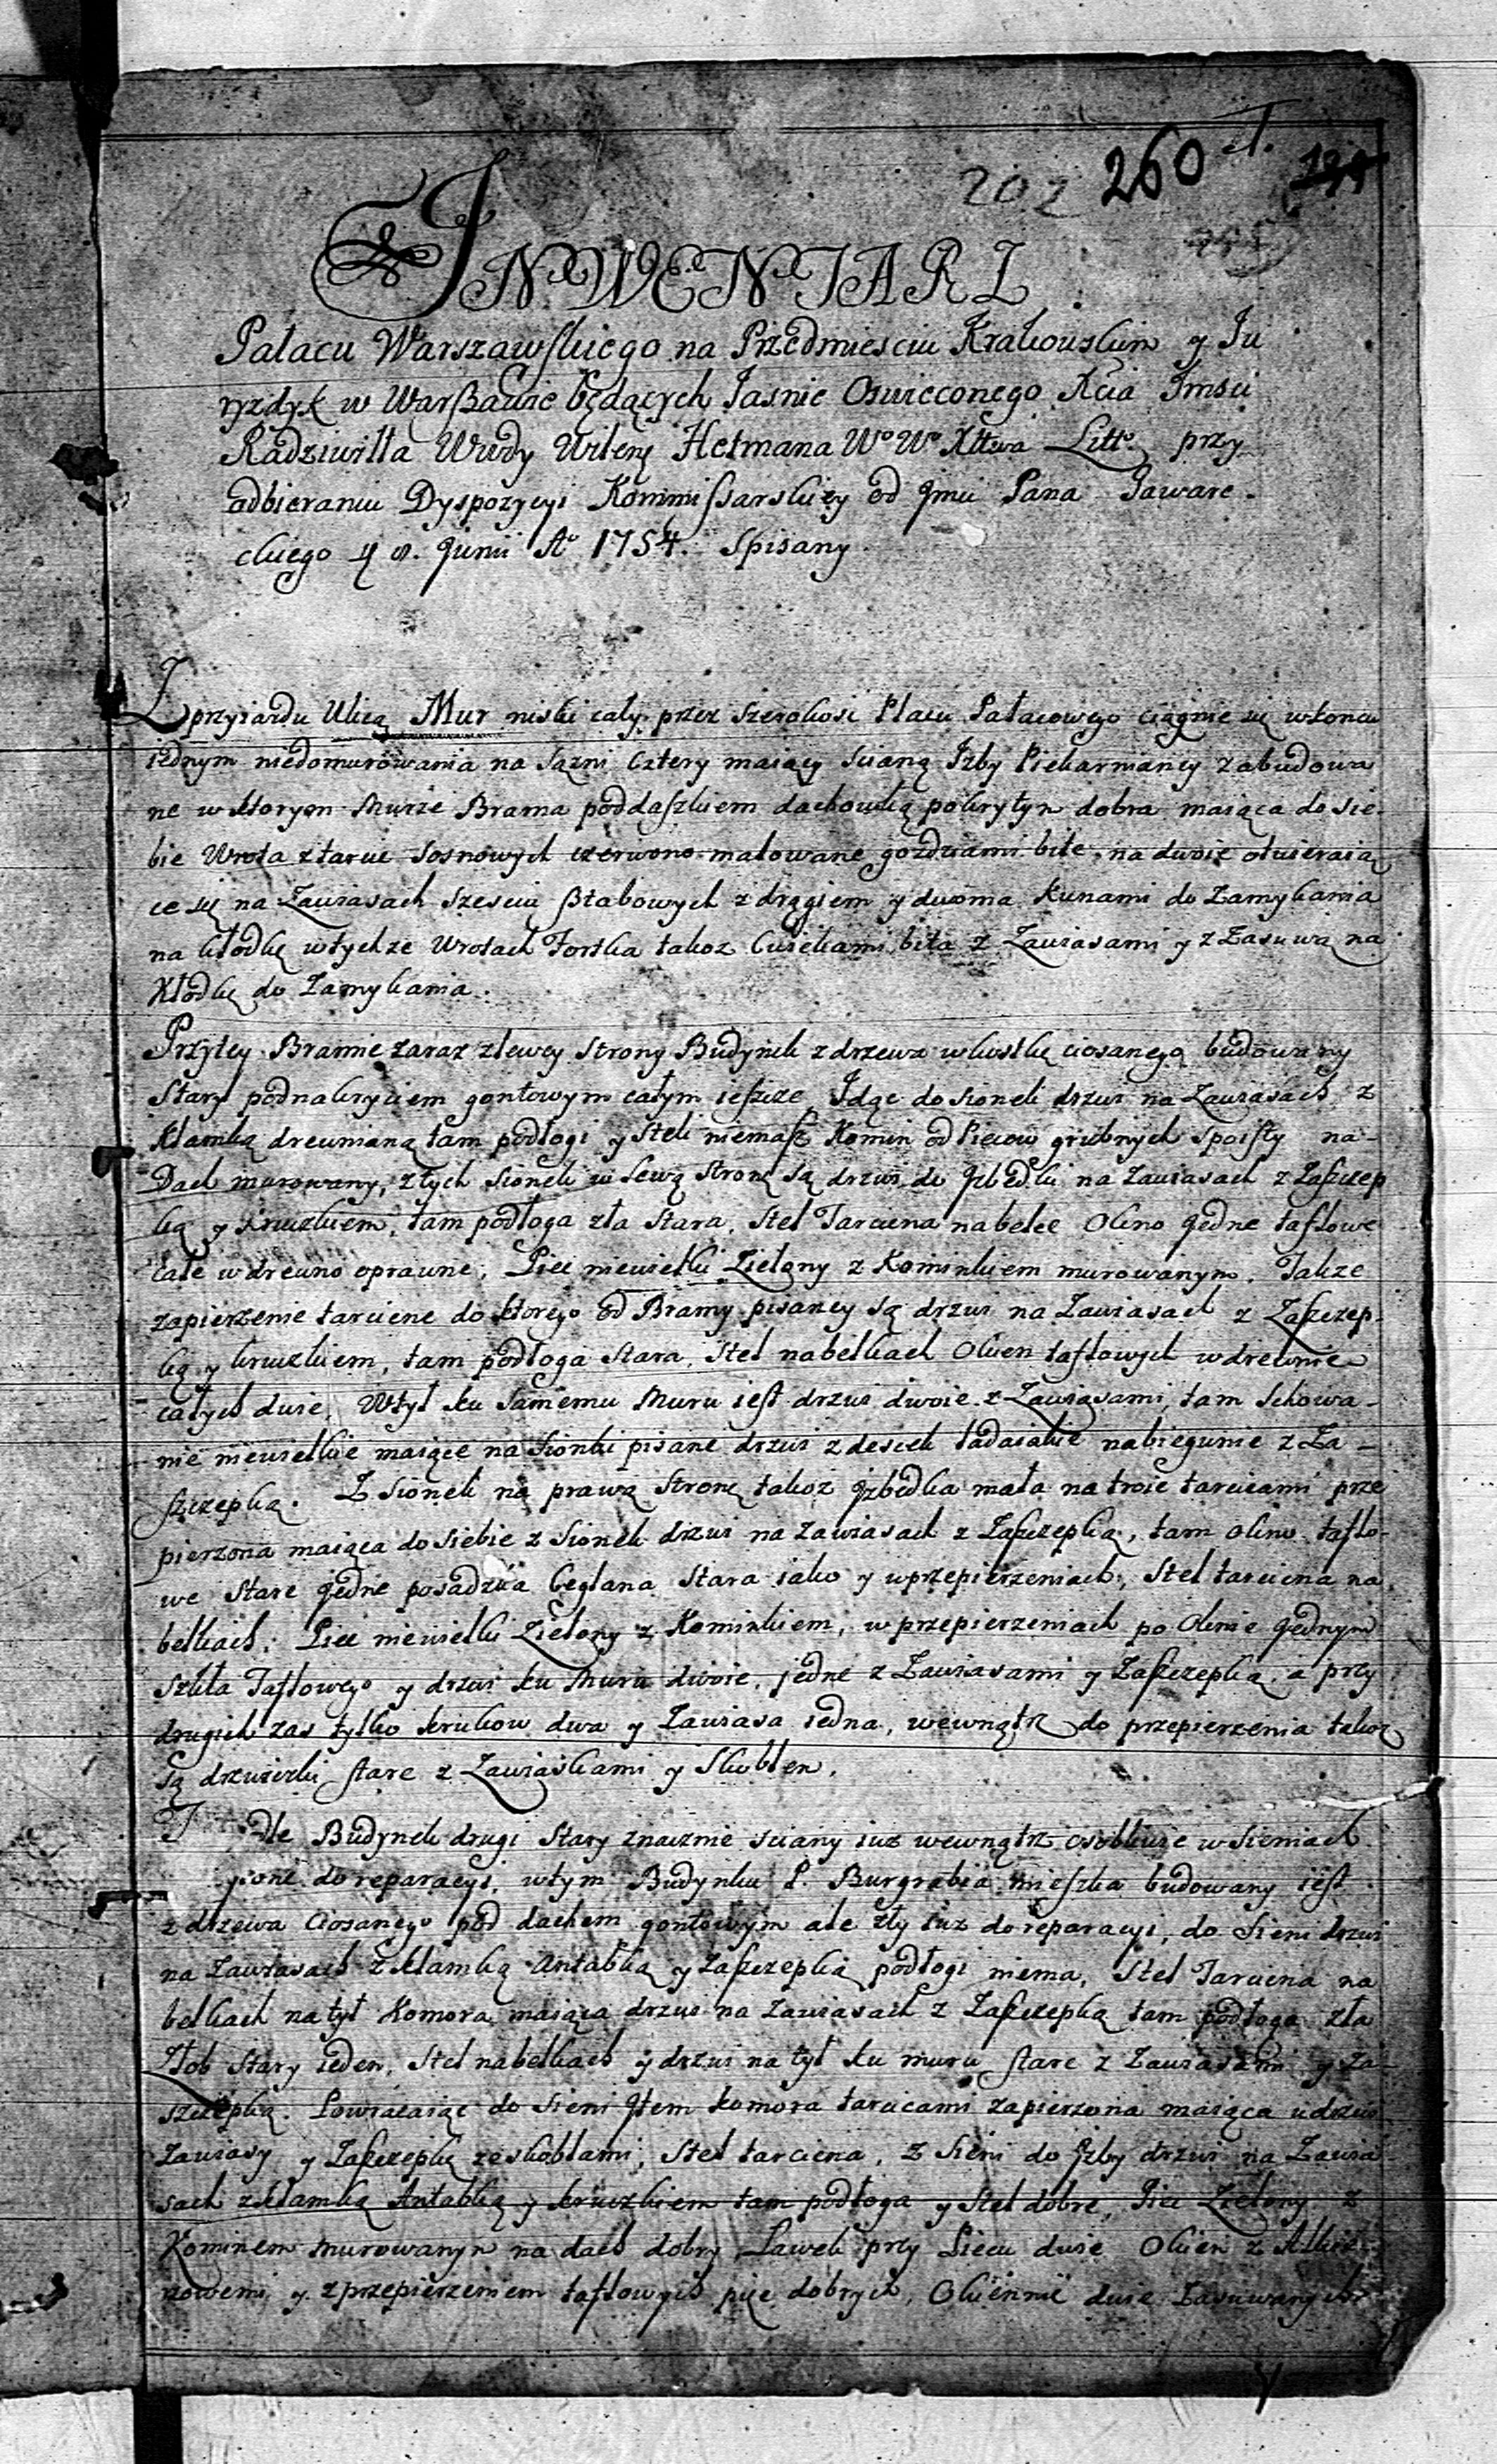 202 260
INWENTARZ
Pałacu Warszawskiego na Przedmiesciu Krakouskim y Ju
ryzdyk w Warszawie będących Jasnie Oswieconego Xcia Jmsci
Radziwiłła Wwdy Wileń Hetmana Wo Wo Xttwa Litto przy
odbieraniu Dyspozycyi Kommissarskiey od Jmci Pana Jaware-
ckiego d 8. Junii Ao 1754. Spisany
Z przyiazdu Ulicą Mur niski cały przez szerokosc Placu Pałacowego ciągnie się w koncu
iednym niedomurowania na sązni cztery maiący scianą Izby Piekarnianey zabudowa
ne w ktorym Murze Brama pod daszkiem dachowką pokrytym dobra maiąca do sie-
bie Wrota z tarcic sosnowych czerwono malowane gozdziami bite, na dwoie otwieraią
ce się na Zawiasach szesciu sztabowych z drągiem y dwoma Kunami do Zamykania
na kłodkę w tychze Wrotach Fortka takoz cwiekami bita z Zawiasami y z Zasuwą na
Kłodkę do Zamykania.
Przytey Bramie zaraz zlewey strony Budynek z drzewa w kostkę ciosanego budowany
Stary pod nakryciem gontowym całym ieszcze Idąc do sionek drzwi na Zawiasach z
Klamką drewnianą tam podłogi y steli niemasz Komin od Piecow grubnych spoisty na-
Dach murowany, z tych sionek w lewą stronę są drzwi do Izbedki na Zawiasach z Zaszczep
ką y kruczkiem, tam podłoga zła stara, Stel Tarciena na belce Okno Jedne taflowe
całe w drewno oprawne, Piec niewielki Zielony z Kominkiem murowanym. Takze
zapierzenie tarciene do ktorego od Bramy pisaney są drzwi na Zawiasach z Zaszczep-
ką y kruczkiem, tam podłoga stara, Stel na belkach Okien taflowych w drewnie
całych dwie, Wtył ku samemu Muru iest drzwi dwoie z Zawiasami, tam Schowa-
nie niewielkie maiące na Sionki pisane drzwi z desek ladaiakie na biegunie z Za-
szczepką. Z Sionek na prawą stronę takoz Izbedka mała na troie tarcicami prze
pierzona maiąca do siebie z Sionek drzwi na zawiasach z Zaszczepką, tam okno taflo-
we stare Jedne posadzka Ceglana stara iako y w przepierzeniach, Stel tarciena na
belkach. Piec niewielki Zielony z Kominkiem, w przepierzeniach po Oknie Jednym
szkła Taflowego y drzwi ku Muru dwoie, jedne z Zawiasami y Zaszczepką, a przy
drugich zas tylko krukow dwa y Zawiasa iedna, wewnątrz do przepierzenia takoz
są drzwiczki stare z Zawiaskami y Skoblem.
dle Budynek drugi Stary znacznie sciany iuz wewnątrz osobliwie w sieniach
do reparacyi, w tym Budynku P. Burgrabia mieszka budowany iest
z drzewa ciosanego pod dachem gontowym ale zły iuz do reparacyi, do Sieni drzwi
na Zawiasach z Klamką Antabką y Zaszczepką podłogi niema, Stel Tarciena na
belkach na tył Komora maiąca drzwi na zawiasach z Zaszczepką tam podłoga zła
Złob stary ieden, Stel na belkach y drzwi na tył ku muru stare z Zawiasami y Za-
szczepką. Powracaiąc do Sieni Item komora tarcicami zapierzona maiąca u drzwi
Zawiasy y Zaszczepkę ze skoblami, Stel tarciena, z Sieni do Izby drzwi na Zawia-
sach z klamką Antabką y kruczkiem tam podłoga y Stel dobre, Piec Zielony z
Kominem murowanym na dach dobry Ławek przy Piecu dwie Okien z Alkie-
rzowemi y z przepierzeniem taflowych pięc dobrych, Okiennic dwie Zasuwanych